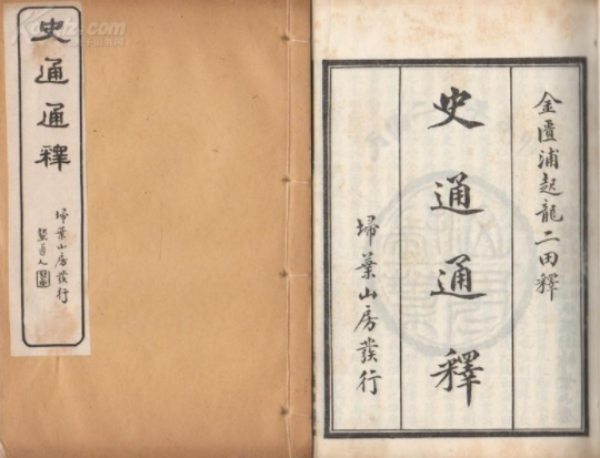 史通通釋
掃葉山房發行
金匱浦起龍二田釋
史通通釋
掃葉山房發行